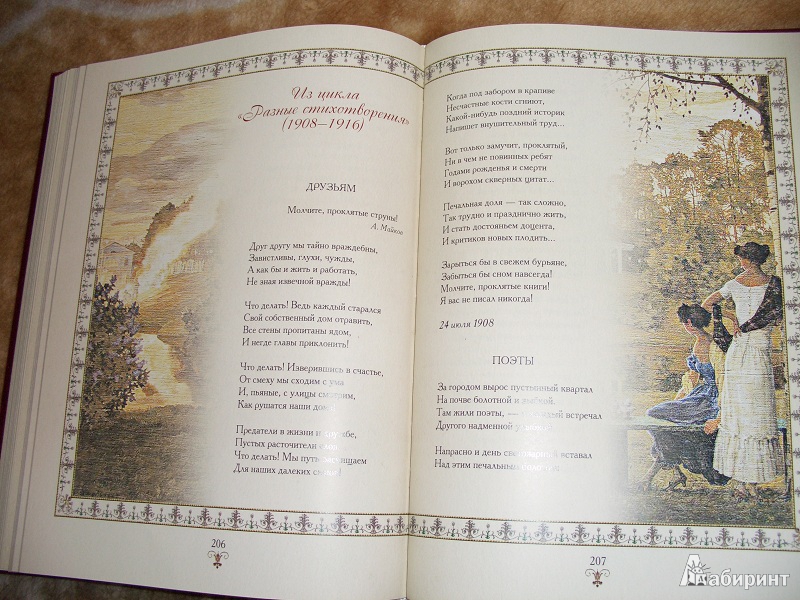 Из цикла
«Разные стихотворения»
(1908—1916)
ДРУЗЬЯМ
Молчите, проклятые струны!
А. Майков
Друг другу мы тайно враждебны,
Завистливы, глухи, чужды,
А как бы и жить и работать,
Не зная извечной вражды!
Что делать! Ведь каждый старался
Свой собственный дом отравить,
Все стены пропитаны ядом,
И негде главы приклонить!
Что делать! Изверившись в счастье,
От смеху мы сходим с ума
И, пьяные, с улицы смотрим,
Как рушатся наши дома!
Предатели в жизни и дружбе,
Пустых расточители слов,
Что делать! Мы путь расчищаем
Для наших далеких
206
Когда под забором в крапиве
Несчастные кости сгниют,
Какой-нибудь поздний историк
Напишет внушительный труд...
Вот только замучит, проклятый,
Ни в чем не повинных ребят
Годами рожденья и смерти
И ворохом скверных цитат...
Печальная доля — так сложно,
Так трудно и празднично жить,
И стать достояньем доцента,
И критиков новых плодить...
Зарыться бы в свежем бурьяне,
Забыться бы сном навсегда!
Молчите, проклятые книги!
Я вас не писал никогда!
24 июля 1908
ПОЭТЫ
За городом вырос пустынный квартал
На почве болотной и
Там жили поэты, — и каждый встречал
Другого надменной
Напрасно и день вставал
Над этим печальным
207
Лабиринт